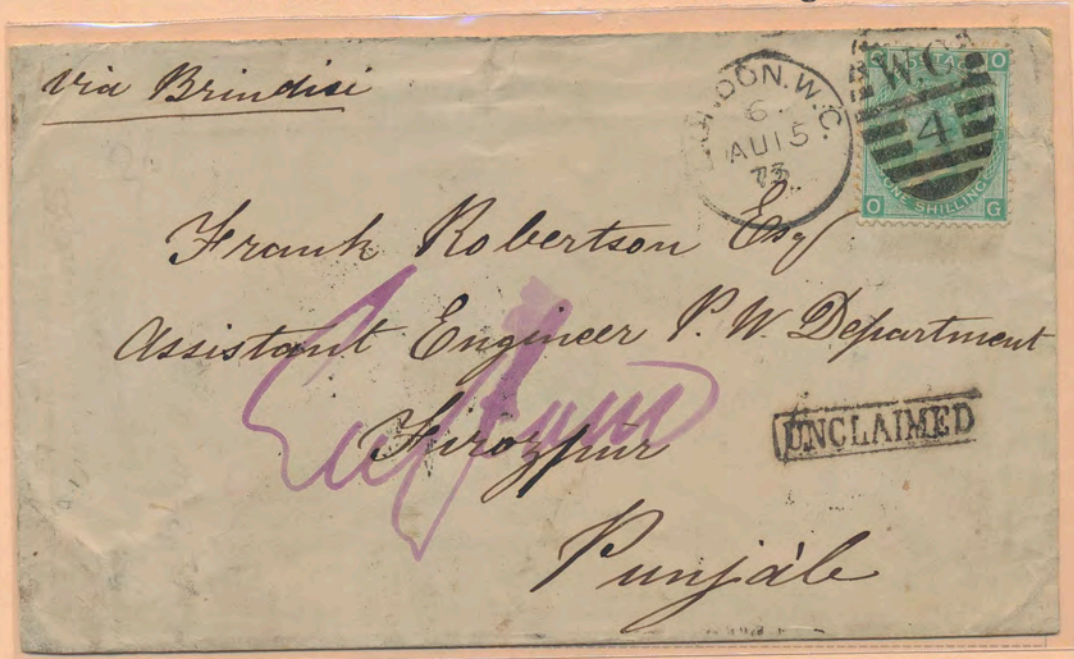 via Brindisi
LONDON. W.C.
6
AU 15
73
W.C.
4
G POSTAGE O
ONE SHILLING
O G
Frank Robertson Esq
Assistant Engineer P. W. Department
Firozpur
UNCLAIMED
Punjáb